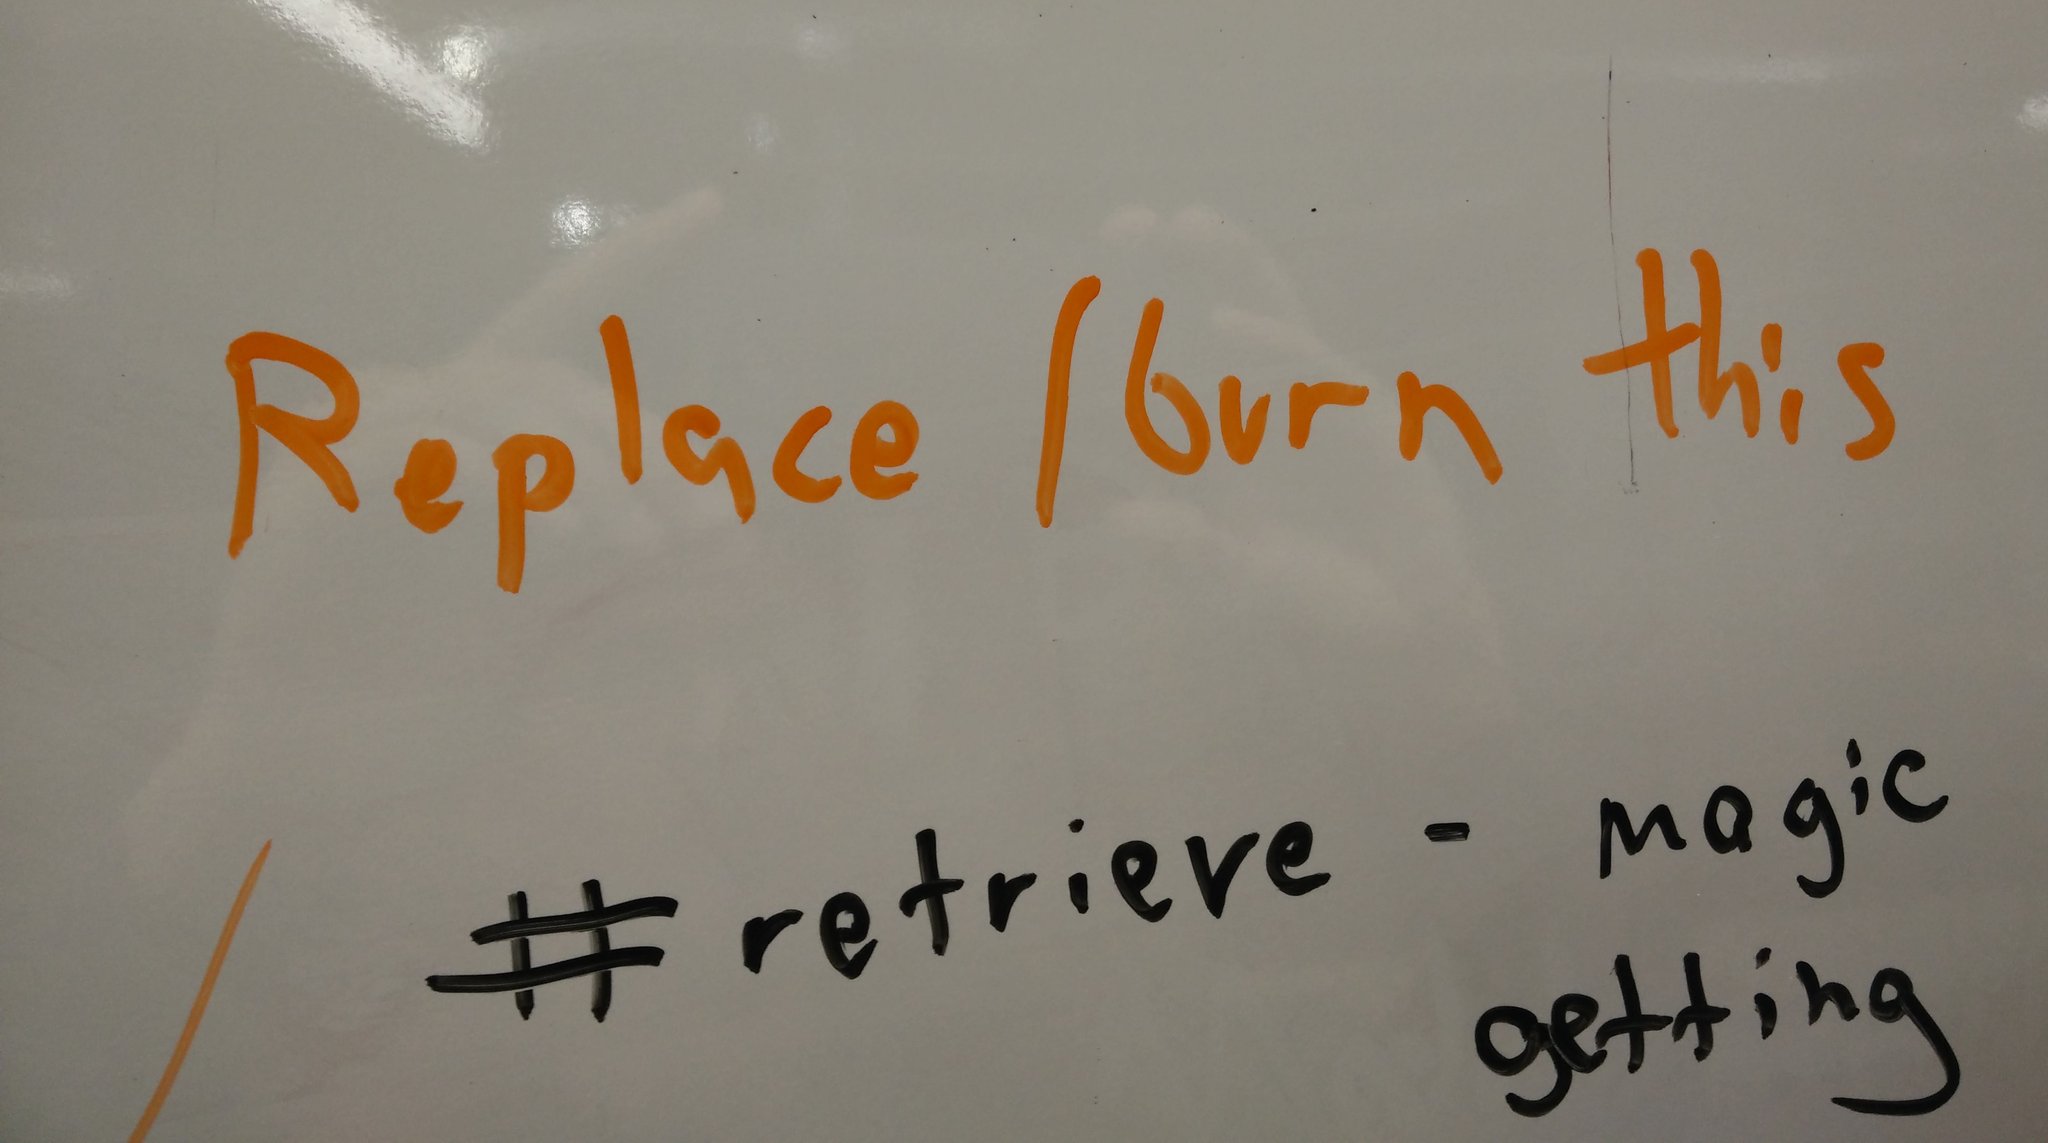 Replace / burn this
#retrieve - magic
getting